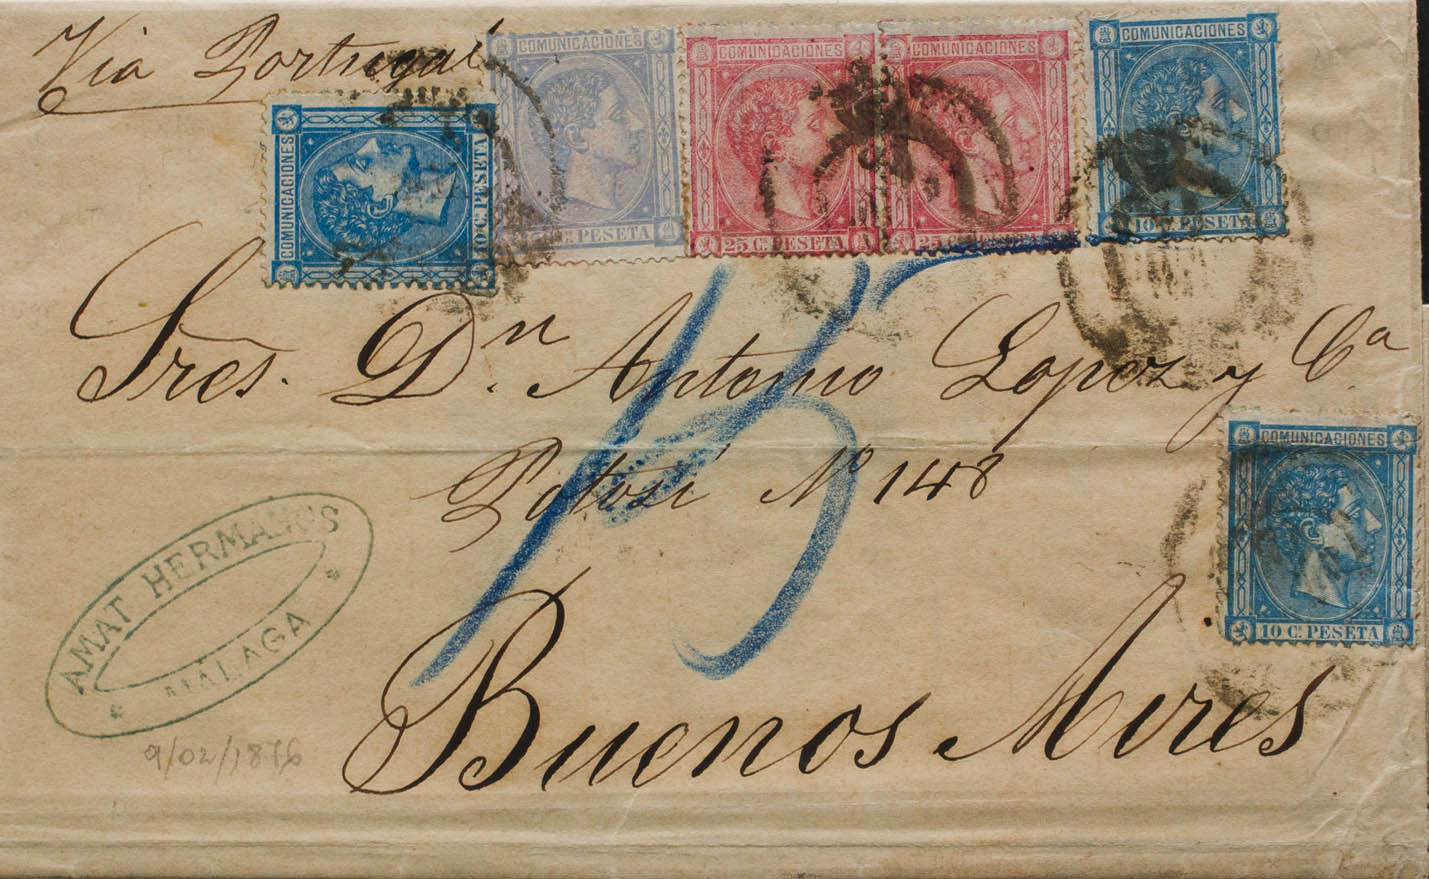 Via Portugal
COMUNICACIONES
10 C. PESETA
COMUNICACIONES
PESETA
COMUNICACIONES
25 C. PESETA
COMUNICACIONES
25 C. PESETA
COMUNICACIONES
10 C. PESETA
Sres. Dn. Antonio Lopez y Ca.
Potosí No 148
15
COMUNICACIONES
10 C. PESETA
Buenos Aires
AMAT HERMANOS
MALAGA
9/02/1876